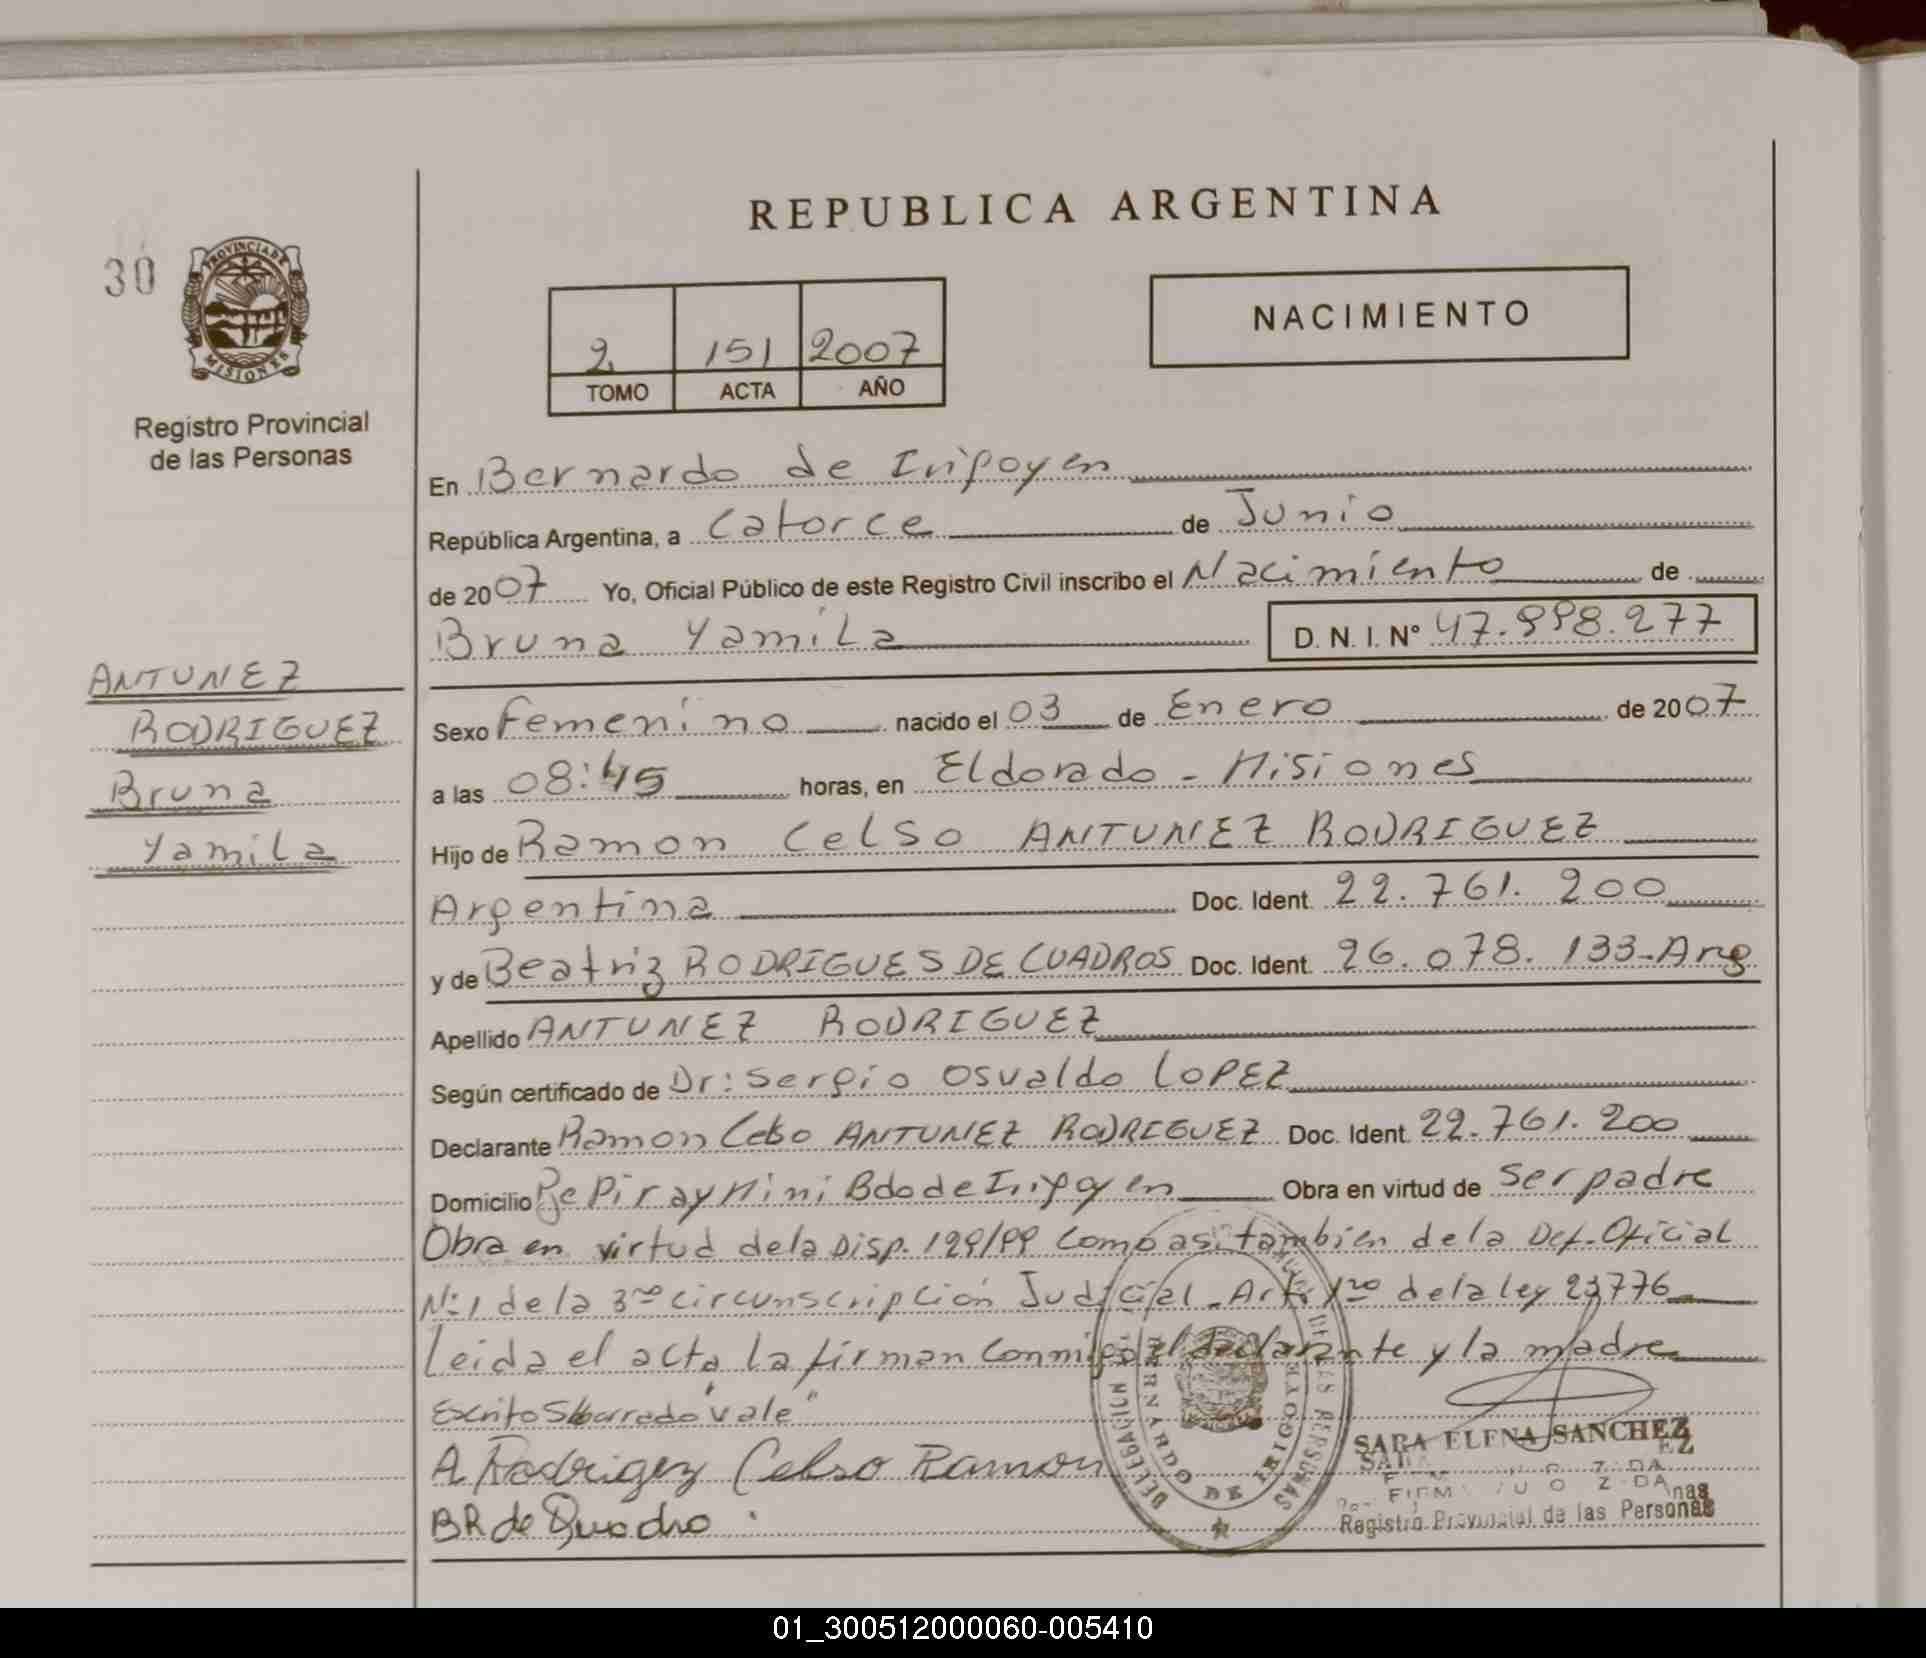 REPUBLICA ARGENTINA
30
PROVINCIA DE
MISIONES
Registro Provincial
de las Personas
2 151 2007
TOMO ACTA AÑO
NACIMIENTO
En Bernardo de Irigoyen
República Argentina, a Catorce de Junio
de 2007 Yo, Oficial Público de este Registro Civil inscribo el Nacimiento de
Bruna Yamila D. N. I. N° 47.898.277
ANTUNEZ
RODRIGUEZ
Bruna
Yamila
Sexo Femenino nacido el 03 de Enero de 2007
a las 08:45 horas, en Eldorado - Misiones
Hijo de Ramon Celso ANTUNEZ RODRIGUEZ
Argentina Doc. Ident. 22.761.200
y de Beatriz RODRIGUES DE CUADROS Doc. Ident. 26.078.133-Arg
Apellido ANTUNEZ RODRIGUEZ
Según certificado de Dr: Sergio Osvaldo LOPEZ
Declarante Ramon Celso ANTUNEZ RODRIGUEZ Doc. Ident. 22.761.200
Domicilio Piray Mini Bdo de Irigoyen Obra en virtud de ser padre
Obra en virtud de la Disp. 129/99 como asi tambien de la Def. Oficial
N:1 de la 3ra circunscripción Judicial - Art. 1ro de la ley 23776
Leida el acta la firman conmigo el declarante y la madre
Escrito S/borrado "vale"
A Rodrigez Celso Ramon
BR de Quadro
DELEGACION DE LAS PERSONAS
BERNARDO DE IRIGOYEN
SARA ELENA SANCHEZ
Registro Provincial de las Personas
01_300512000060-005410